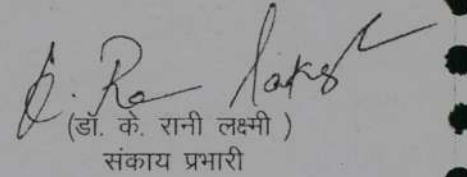 (डॉ. के. रानी लक्ष्मी )
संकाय प्रभारी